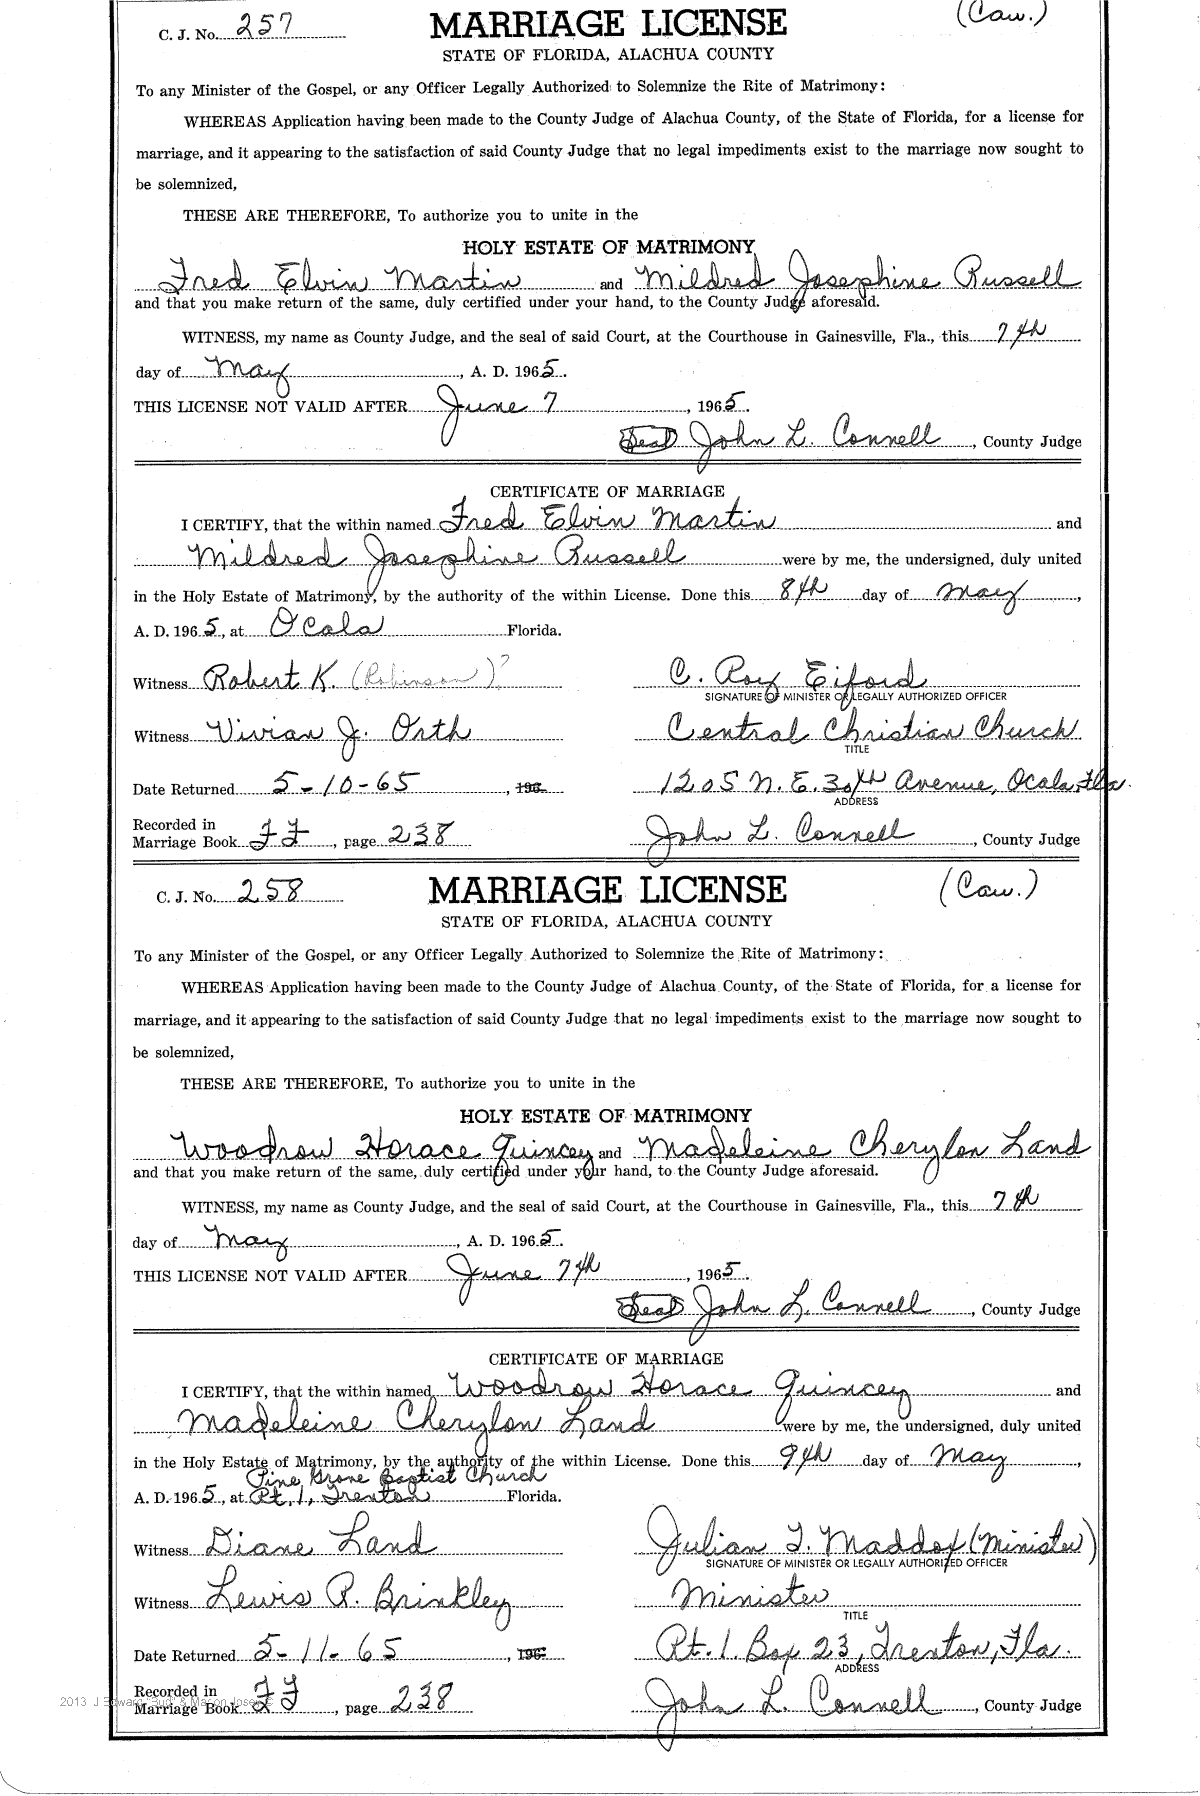 C. J. No. 257 MARRIAGE LICENSE (Cau.)
STATE OF FLORIDA, ALACHUA COUNTY
To any Minister of the Gospel, or any Officer Legally Authorized to Solemnize the Rite of Matrimony:
WHEREAS Application having been made to the County Judge of Alachua County, of the State of Florida, for a license for
marriage, and it appearing to the satisfaction of said County Judge that no legal impediments exist to the marriage now sought to
be solemnized,
THESE ARE THEREFORE, To authorize you to unite in the
HOLY ESTATE OF MATRIMONY
Fred Elvin Martin and Mildred Josephine Russell
and that you make return of the same, duly certified under your hand, to the County Judge aforesaid.
WITNESS, my name as County Judge, and the seal of said Court, at the Courthouse in Gainesville, Fla., this 7th
day of May, A. D. 1965.
THIS LICENSE NOT VALID AFTER June 7, 1965.
Seal John L. Connell, County Judge
CERTIFICATE OF MARRIAGE
I CERTIFY, that the within named Fred Elvin Martin and
Mildred Josephine Russell were by me, the undersigned, duly united
in the Holy Estate of Matrimony, by the authority of the within License. Done this 8th day of May,
A. D. 1965, at Ocala Florida.
Witness Robert K. (Robinson)? C. Roy Eiford
SIGNATURE OF MINISTER OR LEGALLY AUTHORIZED OFFICER
Witness Vivian J. Orth Central Christian Church
TITLE
Date Returned 5-10-65, 196 1205 N. E. 30th Avenue, Ocala, Fla.
ADDRESS
Recorded in
Marriage Book FF, page 238 John L. Connell, County Judge
C. J. No. 258 MARRIAGE LICENSE (Cau.)
STATE OF FLORIDA, ALACHUA COUNTY
To any Minister of the Gospel, or any Officer Legally Authorized to Solemnize the Rite of Matrimony:
WHEREAS Application having been made to the County Judge of Alachua County, of the State of Florida, for a license for
marriage, and it appearing to the satisfaction of said County Judge that no legal impediments exist to the marriage now sought to
be solemnized,
THESE ARE THEREFORE, To authorize you to unite in the
HOLY ESTATE OF MATRIMONY
Woodrow Horace Quincey and Madeleine Cherylon Land
and that you make return of the same, duly certified under your hand, to the County Judge aforesaid.
WITNESS, my name as County Judge, and the seal of said Court, at the Courthouse in Gainesville, Fla., this 7th
day of May, A. D. 1965.
THIS LICENSE NOT VALID AFTER June 7th, 1965.
Seal John L. Connell, County Judge
CERTIFICATE OF MARRIAGE
I CERTIFY, that the within named Woodrow Horace Quincey and
Madeleine Cherylon Land were by me, the undersigned, duly united
in the Holy Estate of Matrimony, by the authority of the within License. Done this 9th day of May,
Pine Grove Baptist Church
A. D. 1965, at Rt. 1, Trenton Florida.
Witness Diane Land Julian T. Maddox (Minister)
SIGNATURE OF MINISTER OR LEGALLY AUTHORIZED OFFICER
Witness Lewis R. Brinkley Minister
TITLE
Date Returned 5-11-65, 196 Rt. 1. Box 23, Trenton, Fla.
ADDRESS
Recorded in
Marriage Book FF, page 238 John L. Connell, County Judge
2013 J Edward "Bud"